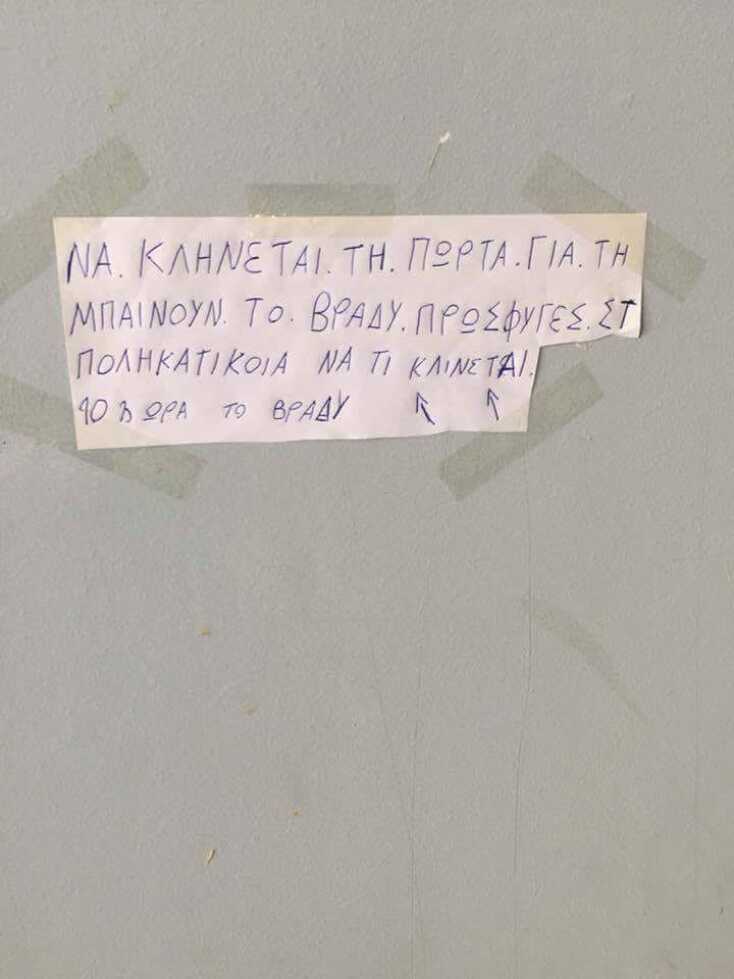 ΝΑ. ΚΛΗΝΕΤΑΙ. ΤΗ. ΠΩΡΤΑ. ΓΙΑ. ΤΗ
ΜΠΑΙΝΟΥΝ. ΤΟ. ΒΡΑΔΥ. ΠΡΩΣΦΥΓΕΣ. ΣΤ
ΠΟΛΗΚΑΤΙΚΟΙΑ ΝΑ ΤΙ ΚΛΙΝΕΤΑΙ.
ΩΡΑ ΤΟ ΒΡΑΔΥ